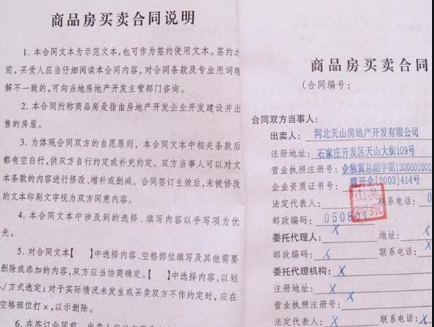 商品房买卖合同说明
1. 本合同文本为示范文本,也可作为签约使用文本。签约之
前,买受人应当仔细阅读本合同内容,对合同条款及专业用词理
解不一致的,可向当地房地产开发主管部门咨询。
2. 本合同所称商品房是指由房地产开发企业开发建设并出
售的房屋。
3. 为体现合同双方的自愿原则,本合同文本中相关条款后
都有空白行,供双方自行约定或补充约定。双方当事人可以对文
本条款的内容进行修改、增补或删减。合同签订生效后,未被修改
的文本印刷文字视为双方同意内容。
4. 本合同文本中涉及到的选择、填写内容以手写项为优
先。
5. 对合同文本【 】中选择内容、空格部位填写及其他需要
删除或添加的内容,双方应当协商确定。【 】中选择内容,以划
√方式选定;对于实际情况未发生或买卖双方不作约定时,应在
空格部位打×,以示删除。
6. 在签订合同前,出卖人应当
商品房买卖合同
(合同编号:
合同双方当事人:
出卖人: 河北天山房地产开发有限公司
注册地址: 石家庄开发区天山大街109号
营业执照注册号:
企业资质证书号: [2003]414号
法定代表人: 联系电话:
邮政编码:
委托代理人: X 地址: X
邮政编码: X 联系电话:
委托代理机构: X
注册地址: X
营业执照注册号: X
法定代表人: X 联系电
邮政编码: X